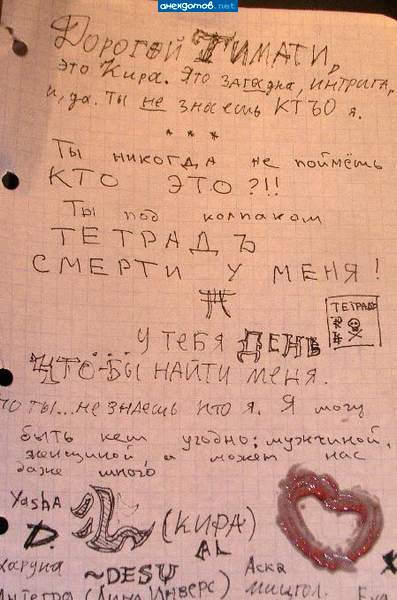 анекдотов.net
Дорогой Тимати,
это Кира. Это загадка, интрига,
и, да. Ты не знаешь КТЪО я.
* * *
Ты никогда не поймёшь
КТО ЭТО?!!
Ты под колпаком
ТЕТРАДЪ
СМЕРТИ У МЕНЯ!
ТЕТРАДЬ
У ТЕБЯ ДЕНЬ
ЧТО-БЫ НАЙТИ МЕНЯ.
но ты... не знаешь кто я. Я могу
быть кем угодно; мужчиной,
женщиной, а может нас
даже много
Yasha
D. L (КИРА)
AL
Харуна ~DESU Аска
Интегра (Лина Инверс)